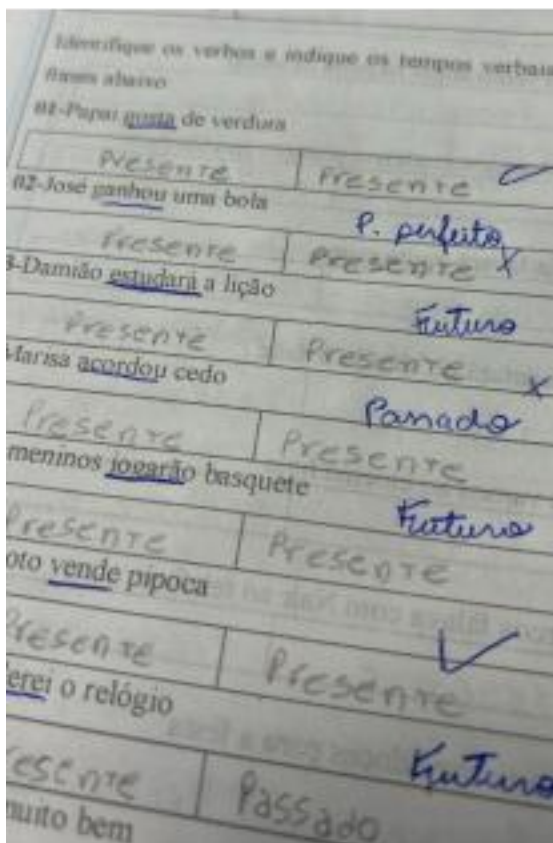 Identifique os verbos e indique os tempos verbais
frases abaixo
01-Papai gosta de verdura
Presente Presente
02-José ganhou uma bola
P. perfeito
Presente Presente X
3-Damião estudará a lição
Futuro
Presente Presente X
Marisa acordou cedo
Passado
Presente Presente
meninos jogarão basquete
Futuro
Presente Presente
oto vende pipoca
Presente Presente
erei o relógio
Futuro
esente Passado
muito bem